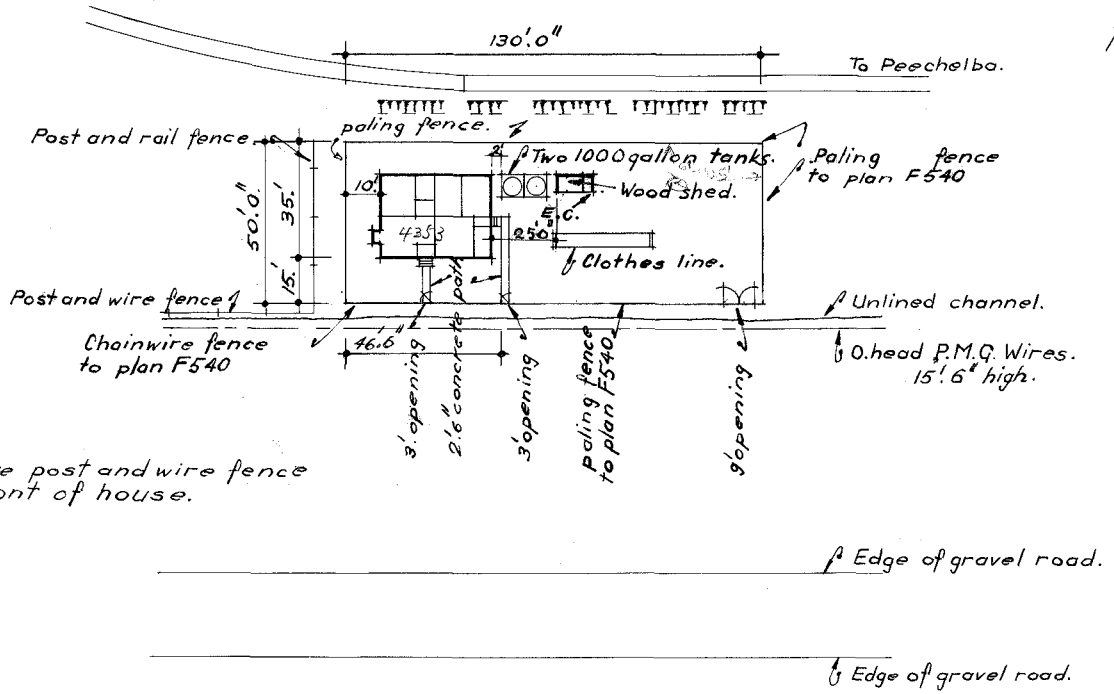 130'.0"
To Peechelba.
Post and rail fence.
paling fence.
2'
Two 1000 gallon tanks.
Paling fence
to plan F540
10'
Wood shed.
50'.0"
35'.
15'.
4353
E.C.
25'.0"
Clothes line.
Post and wire fence
Unlined channel.
Chainwire fence
to plan F540
46'.6"
O.head P.M.G. Wires.
15'.6" high.
3'.opening
2'.6" concrete path
3'opening
paling fence
to plan F540.
9'opening
post and wire fence
of house.
Edge of gravel road.
Edge of gravel road.